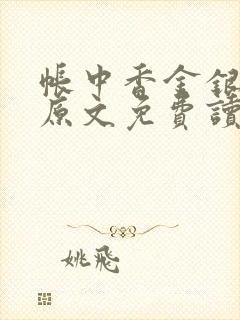 帳中香金銀
原文免費讀
姚飛